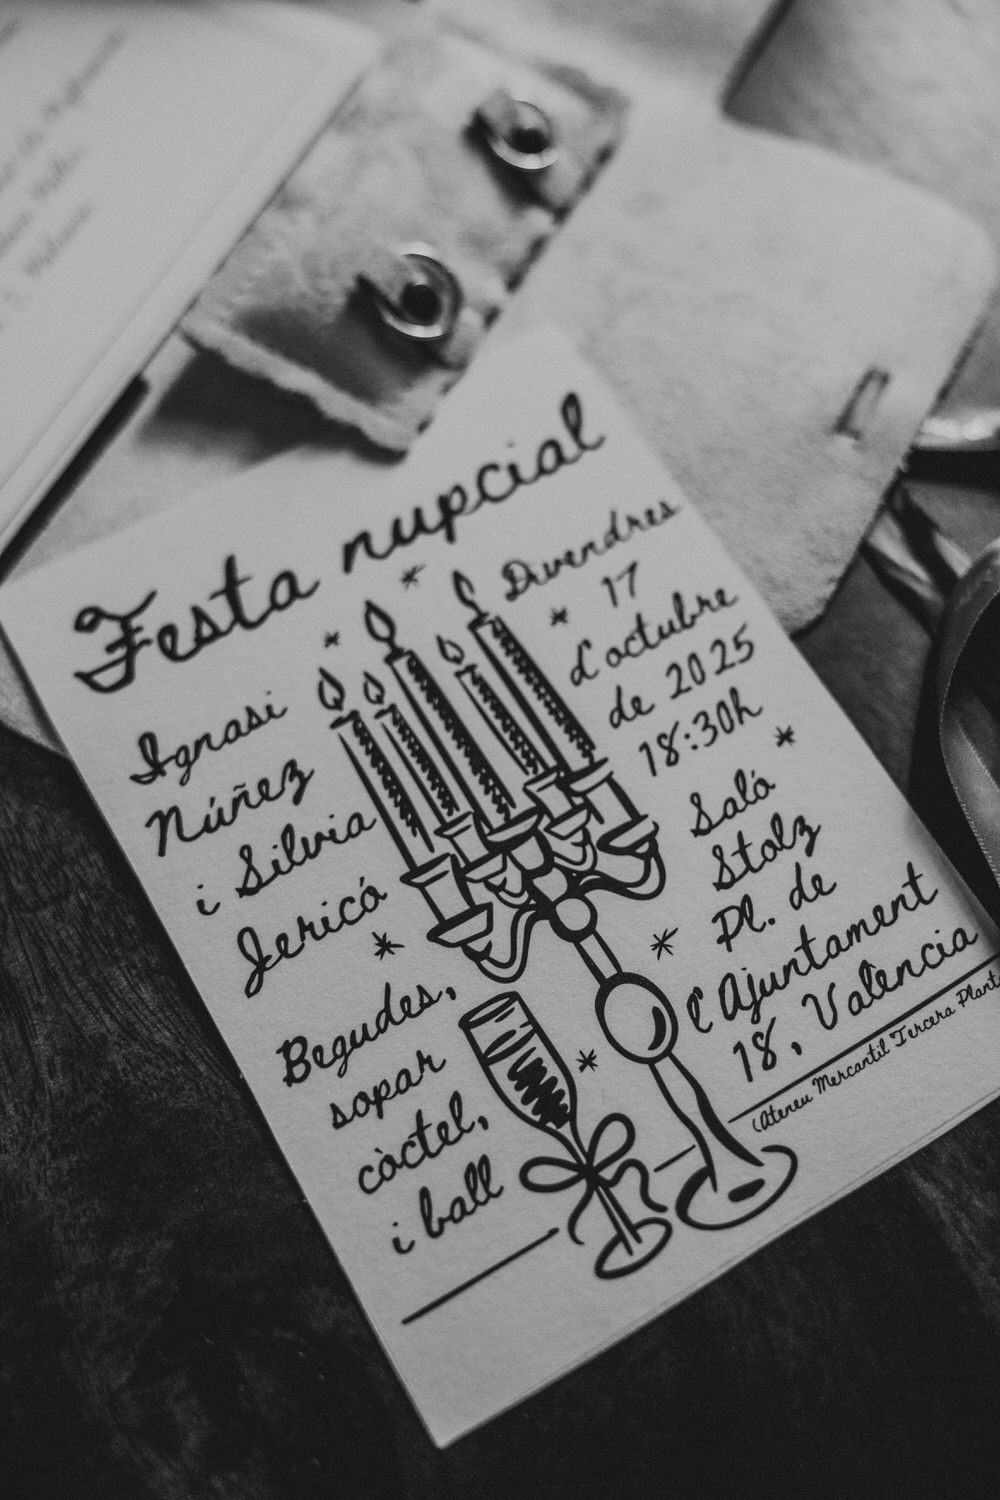 Festa nupcial
Ignasi
Núñez
i Silvia
Jericó
Begudes,
sopar
còctel,
i ball
Divendres
17
d'octubre
de 2025
18:30h
Saló
Stolz
Pl. de
l'Ajuntament
18, València
(Ateneu Mercantil Tercera Planta